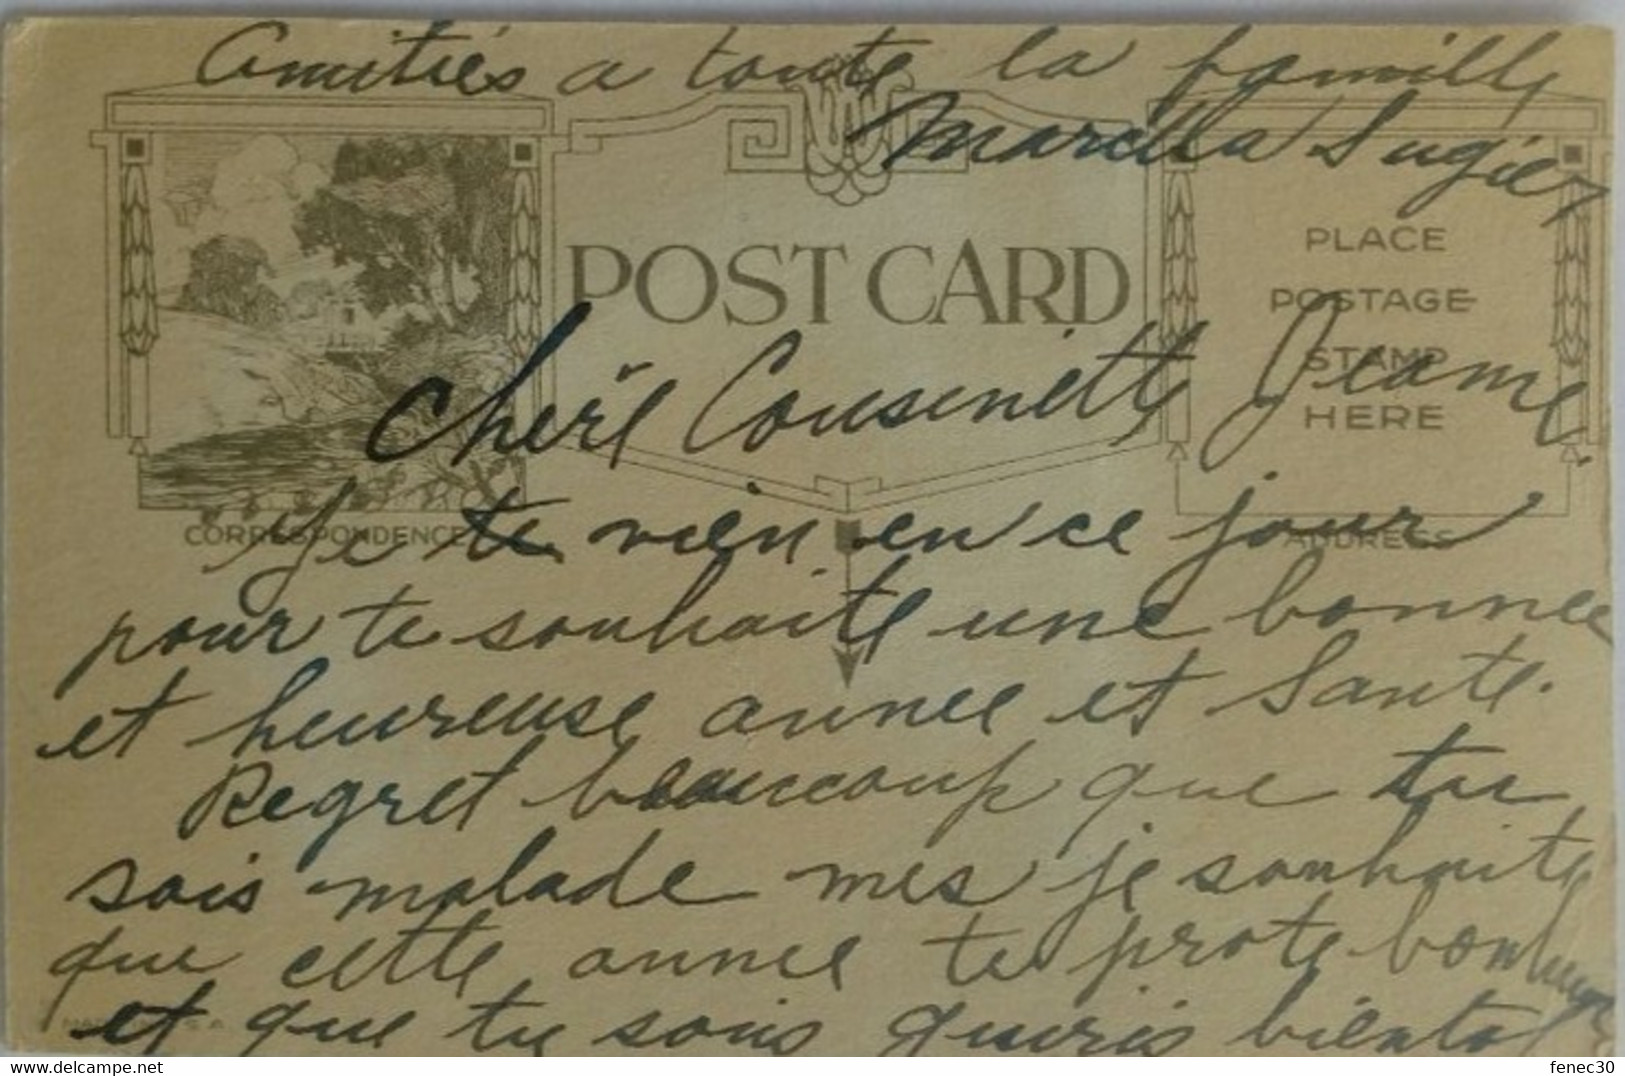 Amitiés a toute la famille
Marcella Sugier
POST CARD
PLACE
POSTAGE
STAMP
HERE
Cherè Cousinette Jeanne
CORRESPONDENCE
ADDRESS
Je te vien en ce jour
pour te souhaite une bonnee
et heureuse annee et Sante.
Regret beaucoup que tu
sois malade mes je souhaite
que cette annee te prote bonheur
et que tu sois queris bientot
delcampe.net
fenec30